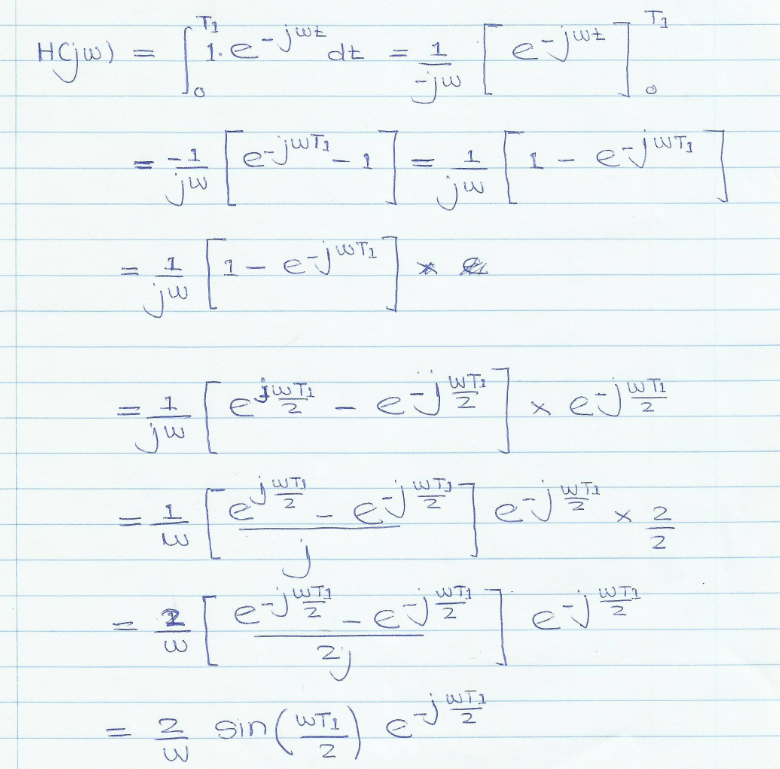 H(jω) = ∫₀^T₁ 1. e^(-jωt) dt = 1/(-jω) [ e^(-jωt) ]₀^T₁
= -1/(jω) [ e^(-jωT₁) - 1 ] = 1/(jω) [ 1 - e^(-jωT₁) ]
= 1/(jω) [ 1 - e^(-jωT₁) ] *
= 1/(jω) [ e^(jωT₁/2) - e^(-jωT₁/2) ] × e^(-jωT₁/2)
= 1/ω [ (e^(jωT₁/2) - e^(-jωT₁/2)) / j ] e^(-jωT₁/2) × 2/2
= 2/ω [ (e^(-jωT₁/2) - e^(-jωT₁/2)) / 2j ] e^(-jωT₁/2)
= 2/ω sin(ωT₁/2) e^(-jωT₁/2)